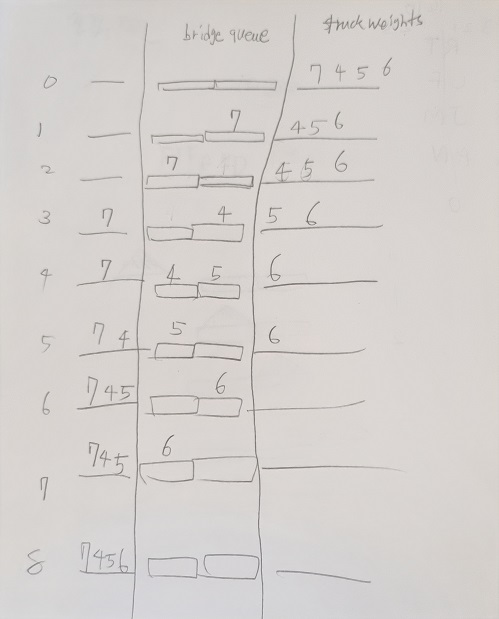 bridge queue truck weights
0 7 4 5 6
1 7 4 5 6
2 7 4 5 6
3 7 4 5 6
4 7 4 5 6
5 7 4 5 6
6 7 4 5 6
7 7 4 5 6
8 7 4 5 6